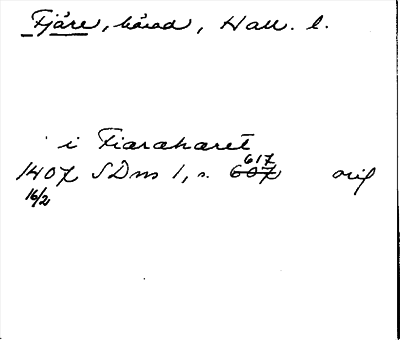 Fjäre, härad, Hall. l.
i Fiaraharet
1407 SDns 1, s. 607 617 orig
16/2